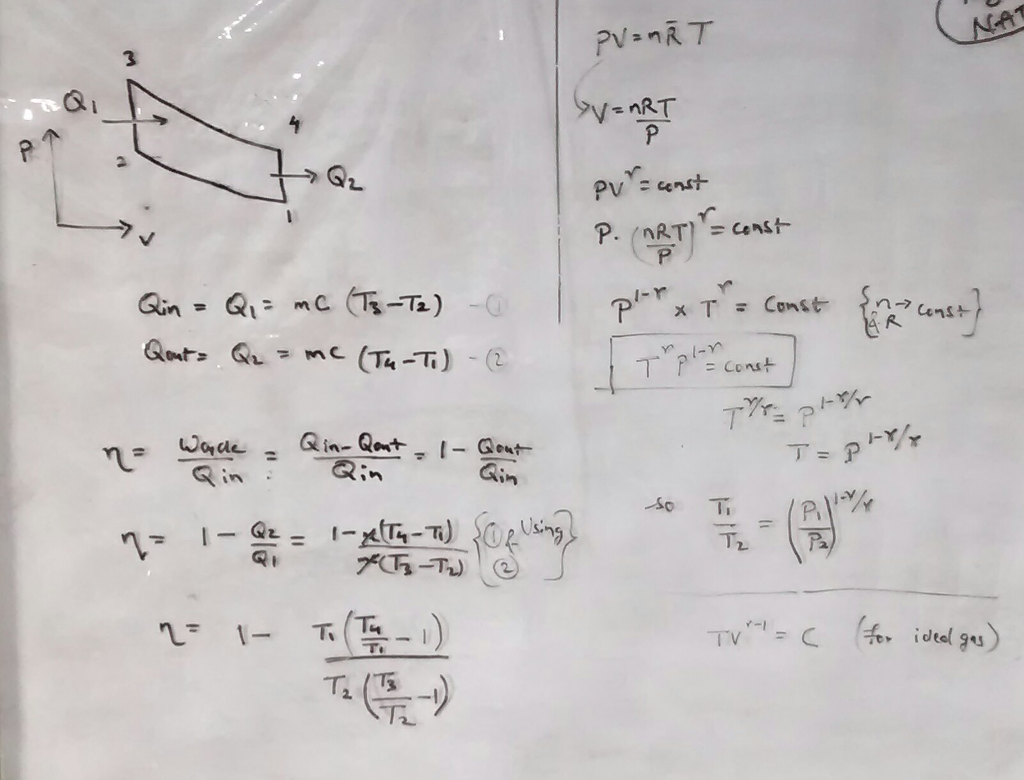 3
Q₁
4
P
2
Q₂
1
V
Qin = Q₁ = mc (T₃-T₂) - ①
Qout = Q₂ = mc (T₄-T₁) - ②
η = Wcycle/Qin = Qin-Qout/Qin = 1 - Qout/Qin
η = 1 - Q₂/Q₁ = 1 - c(T₄-T₁)/c(T₃-T₂) {Using ① & ②}
η = 1 - T₁(T₄/T₁ - 1)/T₂(T₃/T₂ - 1)
NAT
PV = nR̄T
V = nRT/P
PV^r = const
P. (nRT/P)^r = const
P^1-r × T^r = const {n & R → const}
T^r P^1-r = const
T^r/r = P^1-r/r
T = P^1-r/r
so T₁/T₂ = (P₁/P₂)^1-r/r
TV^r-1 = C (for ideal gas)